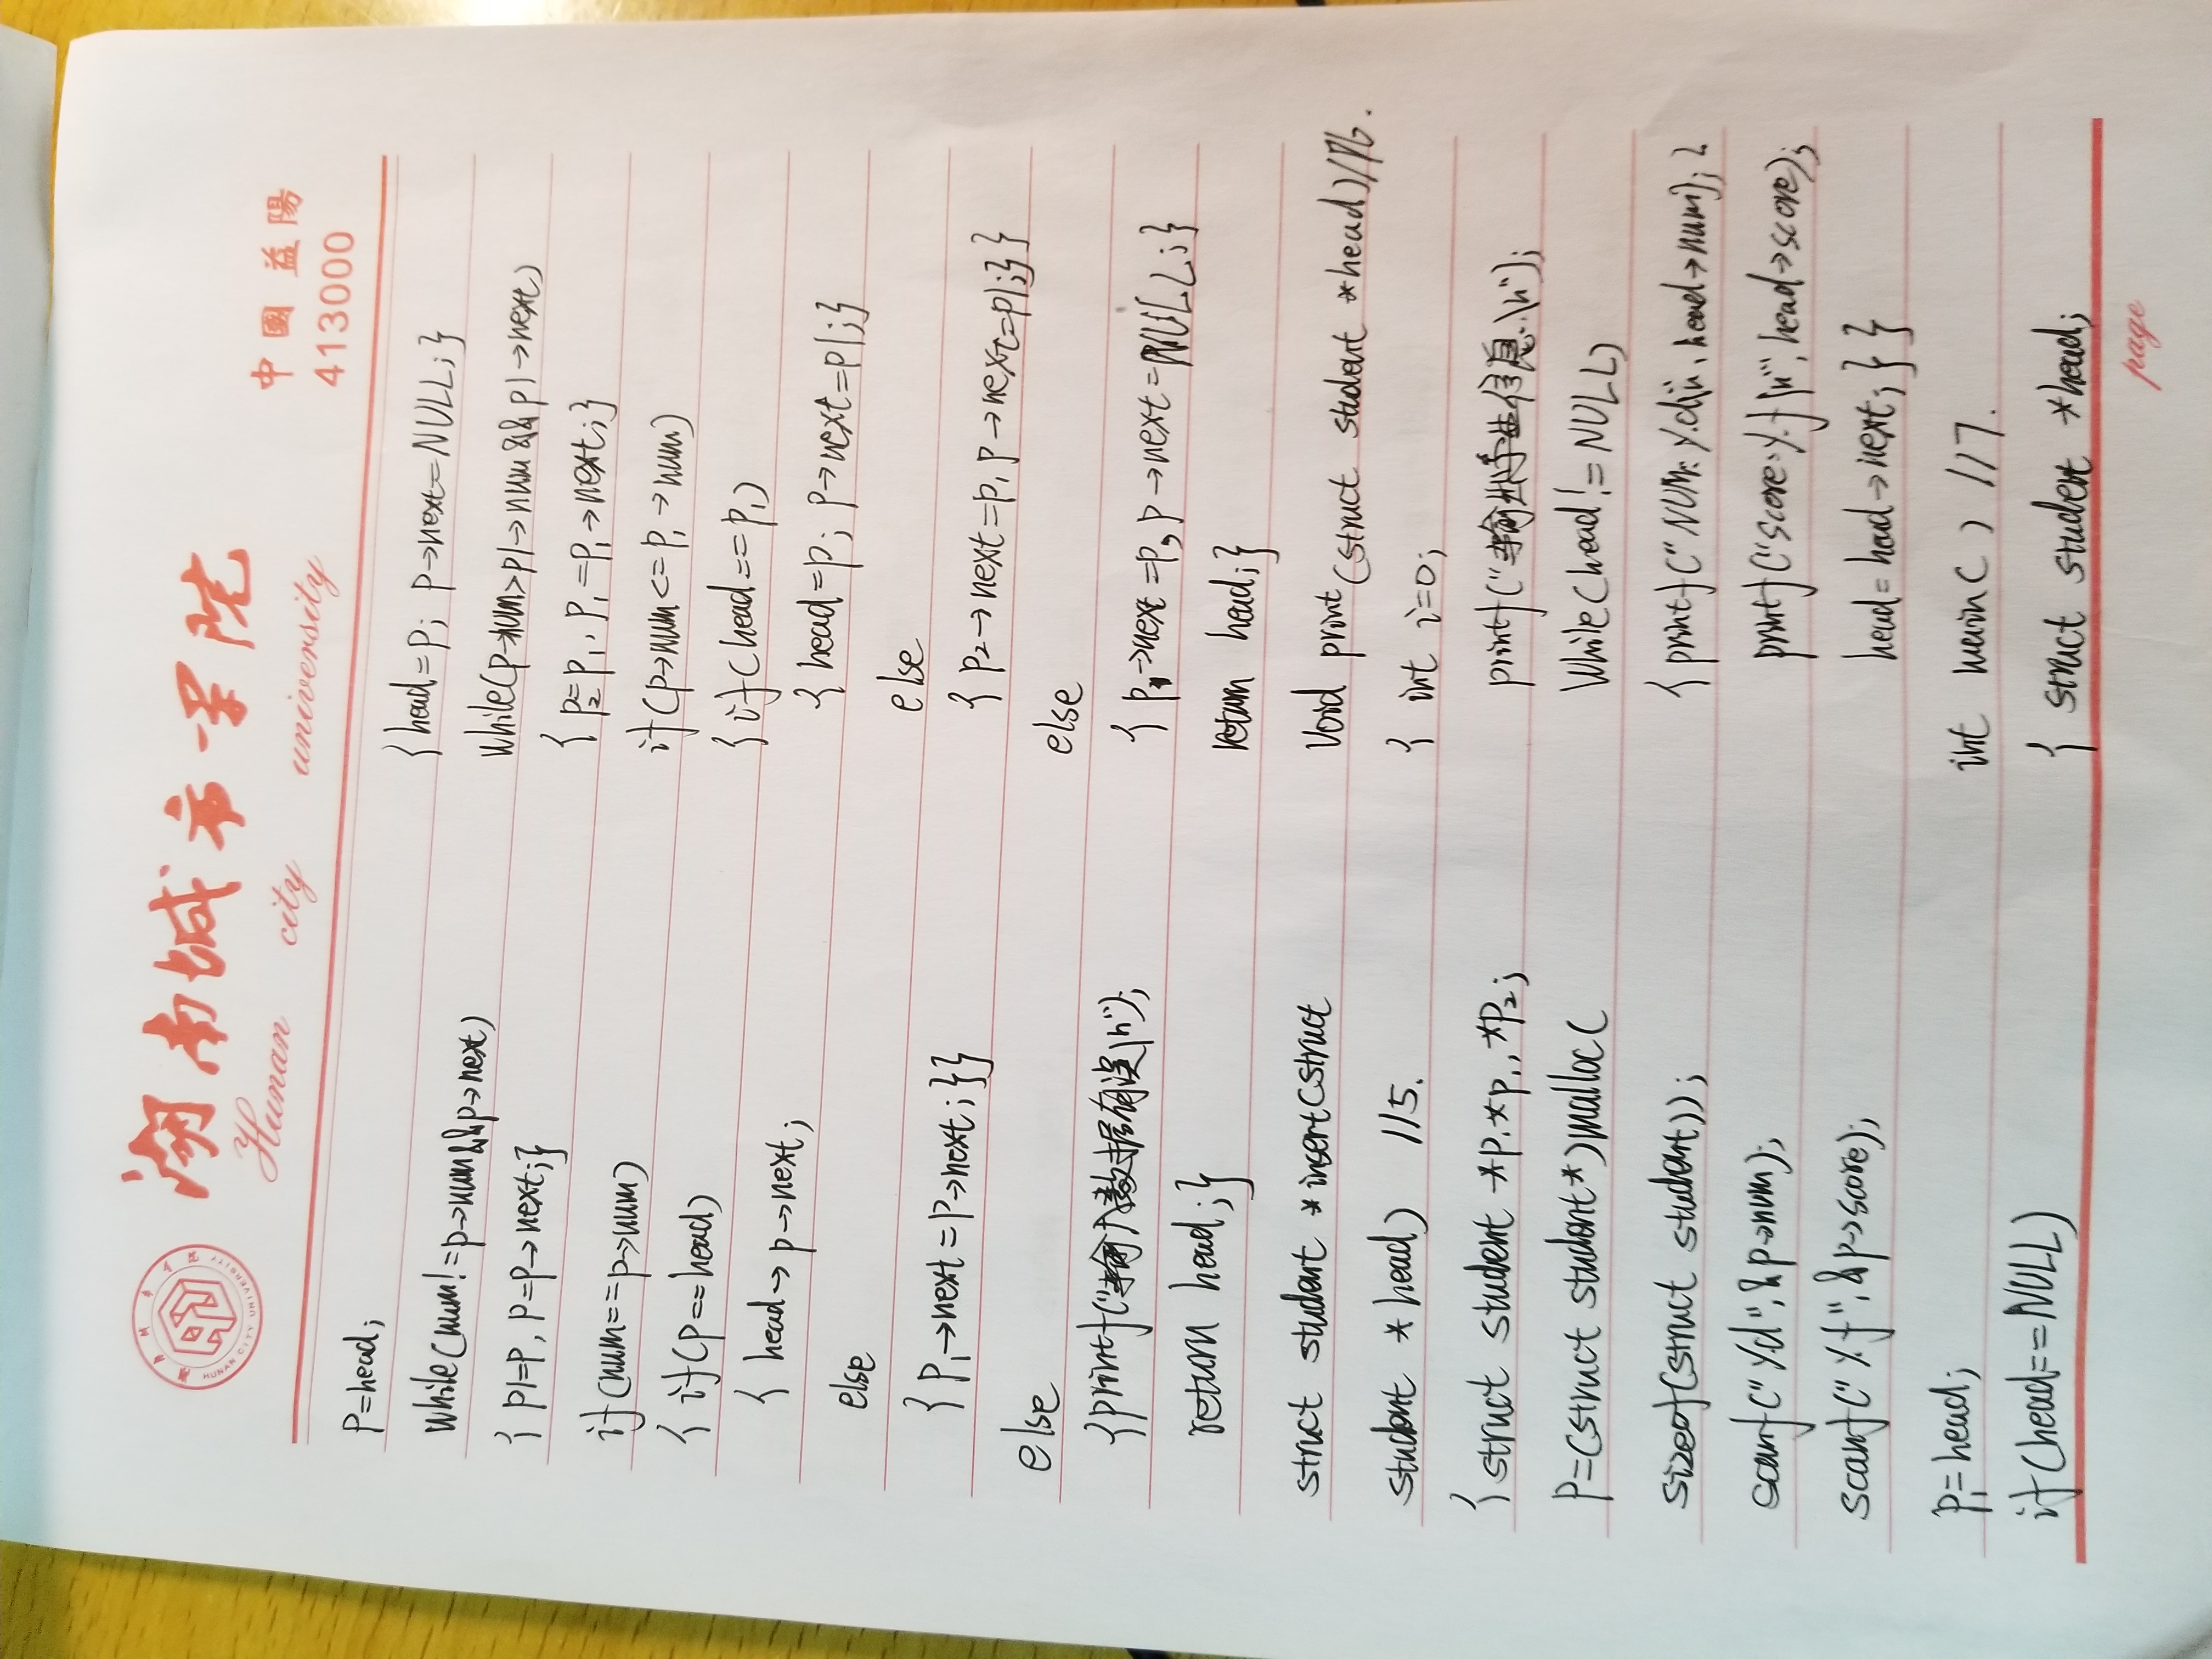 湖南城市学院
Hunan city university
HUNAN CITY UNIVERSITY
中國益陽
413000
p=head;
while(num!=p->num&&p->next)
{ p1=p, p=p->next;}
if(num==p->num)
{ if(p==head)
{ head→ p->next;
else
{ p1->next=p->next;}}
else
{printf("输入数据有误\n");
return head;}
struct student *insert(struct
student *head) //5.
{ struct student *p,*p1,*p2;
p=(struct student*)malloc(
sizeof(struct student));
scanf("%d",&p->num);
scanf("%f",&p->score);
p1=head;
if(head==NULL)
{head=p; p->next=NULL;}
while(p->num>p1->num&&p1->next)
{ p2=p1, p1=p1->next;}
if(p->num<=p1->num)
{ if(head==p1)
{ head=p; p->next=p1;}
else
{ p2->next=p, p->next=p1;}}
else
{ p1->next=p, p->next=NULL;}
return head;}
void print(struct student *head)//6.
{ int i=0;
printf("输出学生信息.\n");
while(head!=NULL)
{ printf("NUM:%d\n", head->num);
printf("score:%f\n", head->score);
head=head->next;}}
int main( ) //7.
{ struct student *head;
page